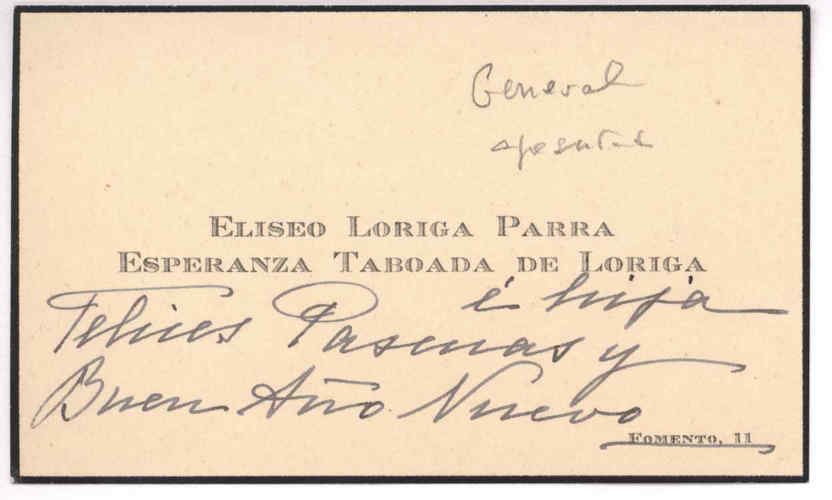 General
ELISEO LORIGA PARRA
ESPERANZA TABOADA DE LORIGA
é hija
Felices Pascuas y
Buen Año Nuevo
FOMENTO, 11